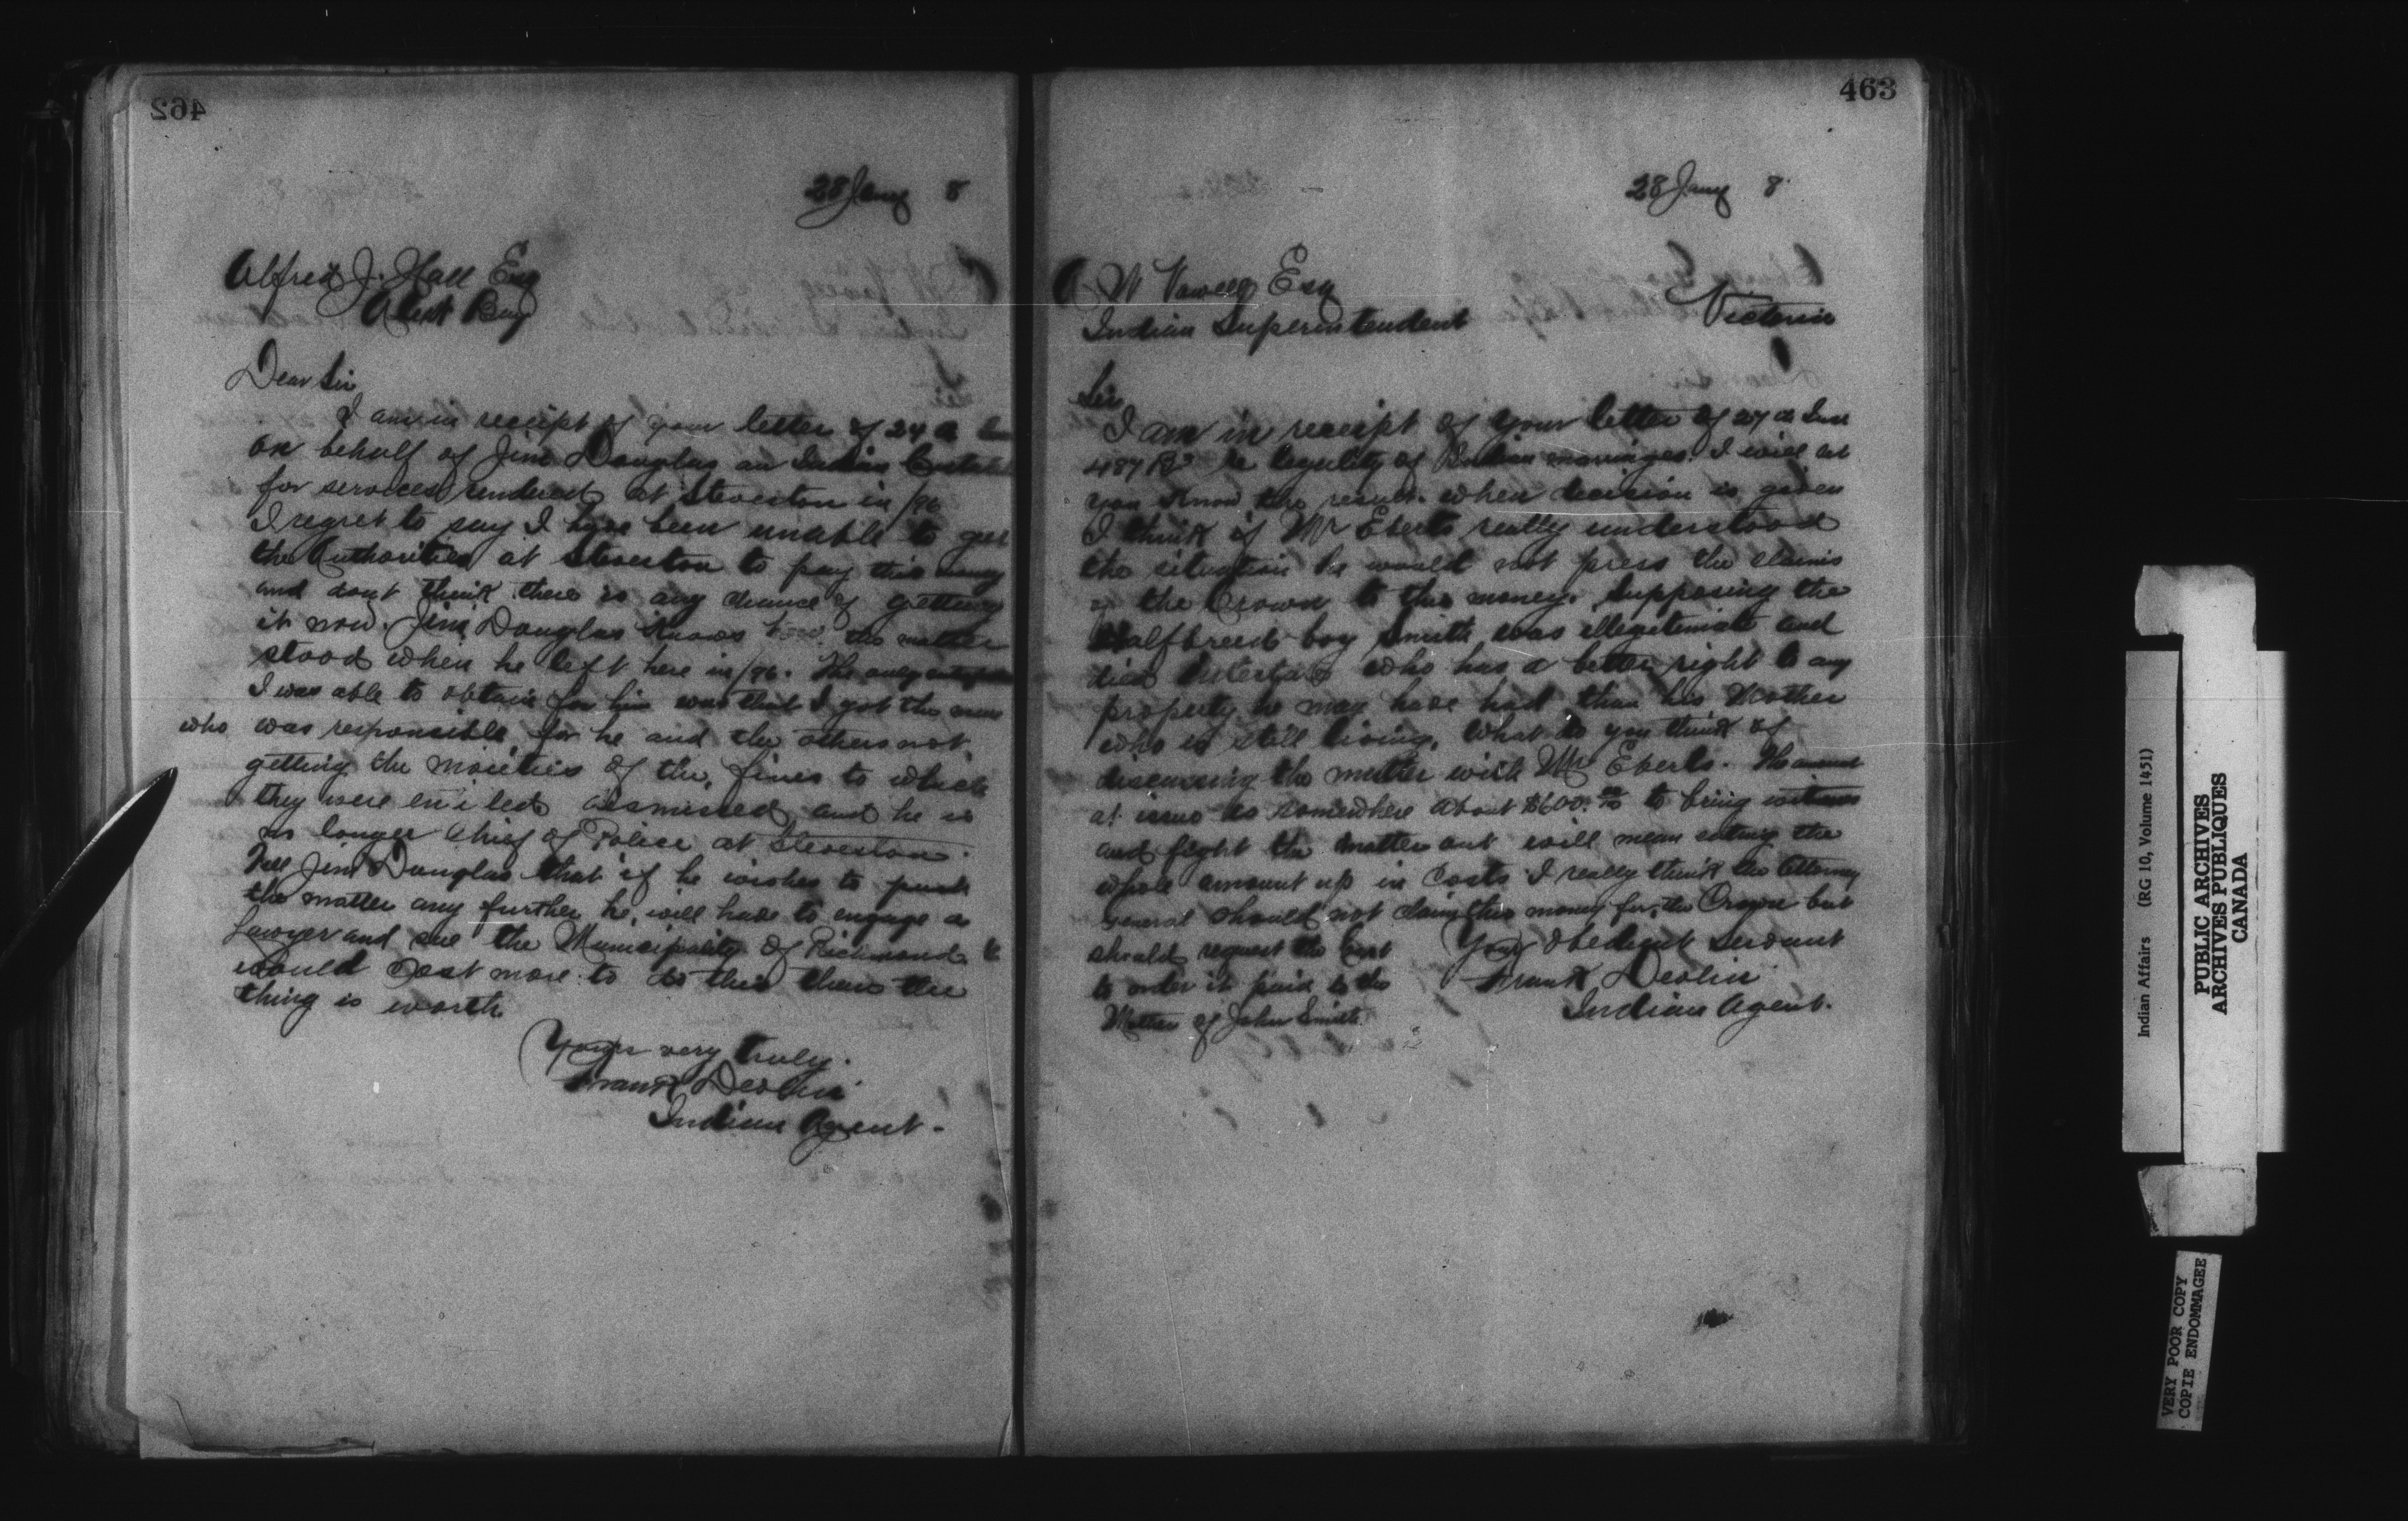 462
28 Jany 8
Alfred J. Hall Esq
Alert Bay
Dear Sir
I am in receipt of your letter of 24th
on behalf of Jim Douglas an Indian
for services rendered at Steveston in /96
I regret to say I have been unable to get
the Authorities at Steveston to pay this money
and dont think there is any chance of getting
it now. Jim Douglas knows how the matter
stood when he left here in /96. The only
I was able to obtain for him was that I got the man
who was responsible for he and the others not
getting the moieties of the fines to which
they were entiled dismissed and he is
no longer Chief of Police at Steveston.
Tell Jim Douglas that if he wishes to push
the matter any further he will have to engage a
Lawyer and sue the Municipality of Richmond it
would cost more to do this than the
thing is worth.
Yours very truly.
Frank Devlin
Indian Agent.
463
28 Jany 8
A W Vowell Esq
Indian Superintendent
Victoria
Sir
I am in receipt of your letter of 27th Inst
487 re legality of Indian marriages. I will let
you know the result when decision is given
I think if Mr Eberts really understood
the situation he would not press the claims
of the Crown to this money. Supposing the
Halfbreed boy Smith was illegitimate and
died intestate who has a better right to any
property he may have had than his Mother
who is still living. What do you think of
discussing the matter with Mr Eberts. The amount
at issue is somewhere about $600.00 to bring witness
and fight the matter out will mean eating the
whole amount up in Costs I really think the Attorney
General should not claim this money for the Crown but
should request the Court
to order it paid to the
Mother of John Smith.
Your obedient servant
Frank Devlin
Indian Agent.
Indian Affairs (RG 10, Volume 1451)
PUBLIC ARCHIVES
ARCHIVES PUBLIQUES
CANADA
VERY POOR COPY
COPIE ENDOMMAGEE